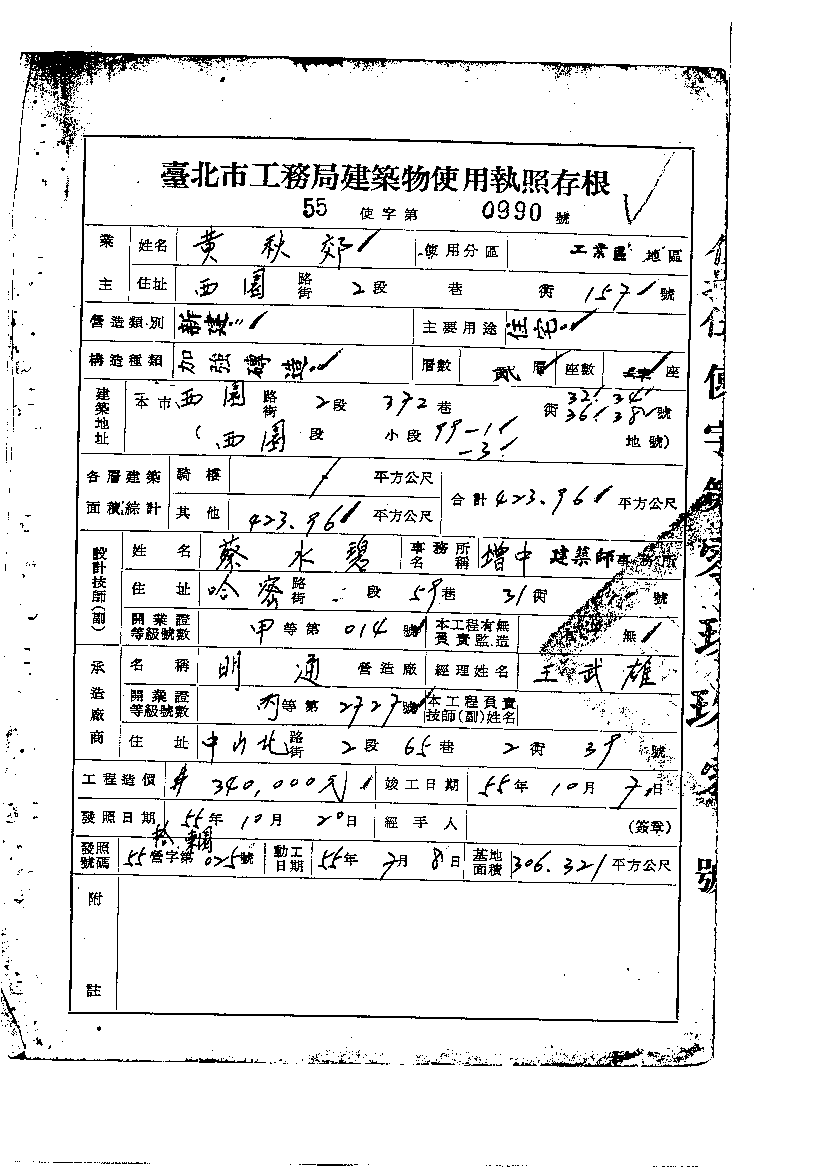 臺北市工務局建築物使用執照存根
55 使字第 0990 號
業主 姓名 黃秋郊 使用分區 工業區 地區
住址 西園 路街 2段 巷 街 157 號
營造類別 新建 主要用途 住宅
構造種類 加強磚造 層數 貳層 座數 肆座
建築地址 本市 西園 路街 2段 372巷 街 32 34 36 38 號
(西園 段 小段 99-1 -3 地號)
各層建築面積綜計 騎樓 平方公尺 合計 423.96 平方公尺
其他 423.96 平方公尺
設計技師(副) 姓名 蔡水碧 事務所名稱 增中 建築師事務所
住址 哈密 路街 段 59巷 31街 號
開業證等級號數 甲等第 014 號 本工程有無負責監造 無
承造廠商 名稱 明通 營造廠 經理姓名 王武雄
開業證等級號數 丙等第 2727 號 本工程負責技師(副)姓名
住址 中山北 路街 2段 65巷 2街 39 號
工程造價 340,000元 竣工日期 55年 10月 7日
發照日期 55年 10月 20日 經手人 (簽章)
發照號碼 55營字第 025號 動工日期 55年 7月 8日 基地面積 306.321 平方公尺
附註
使字第
號